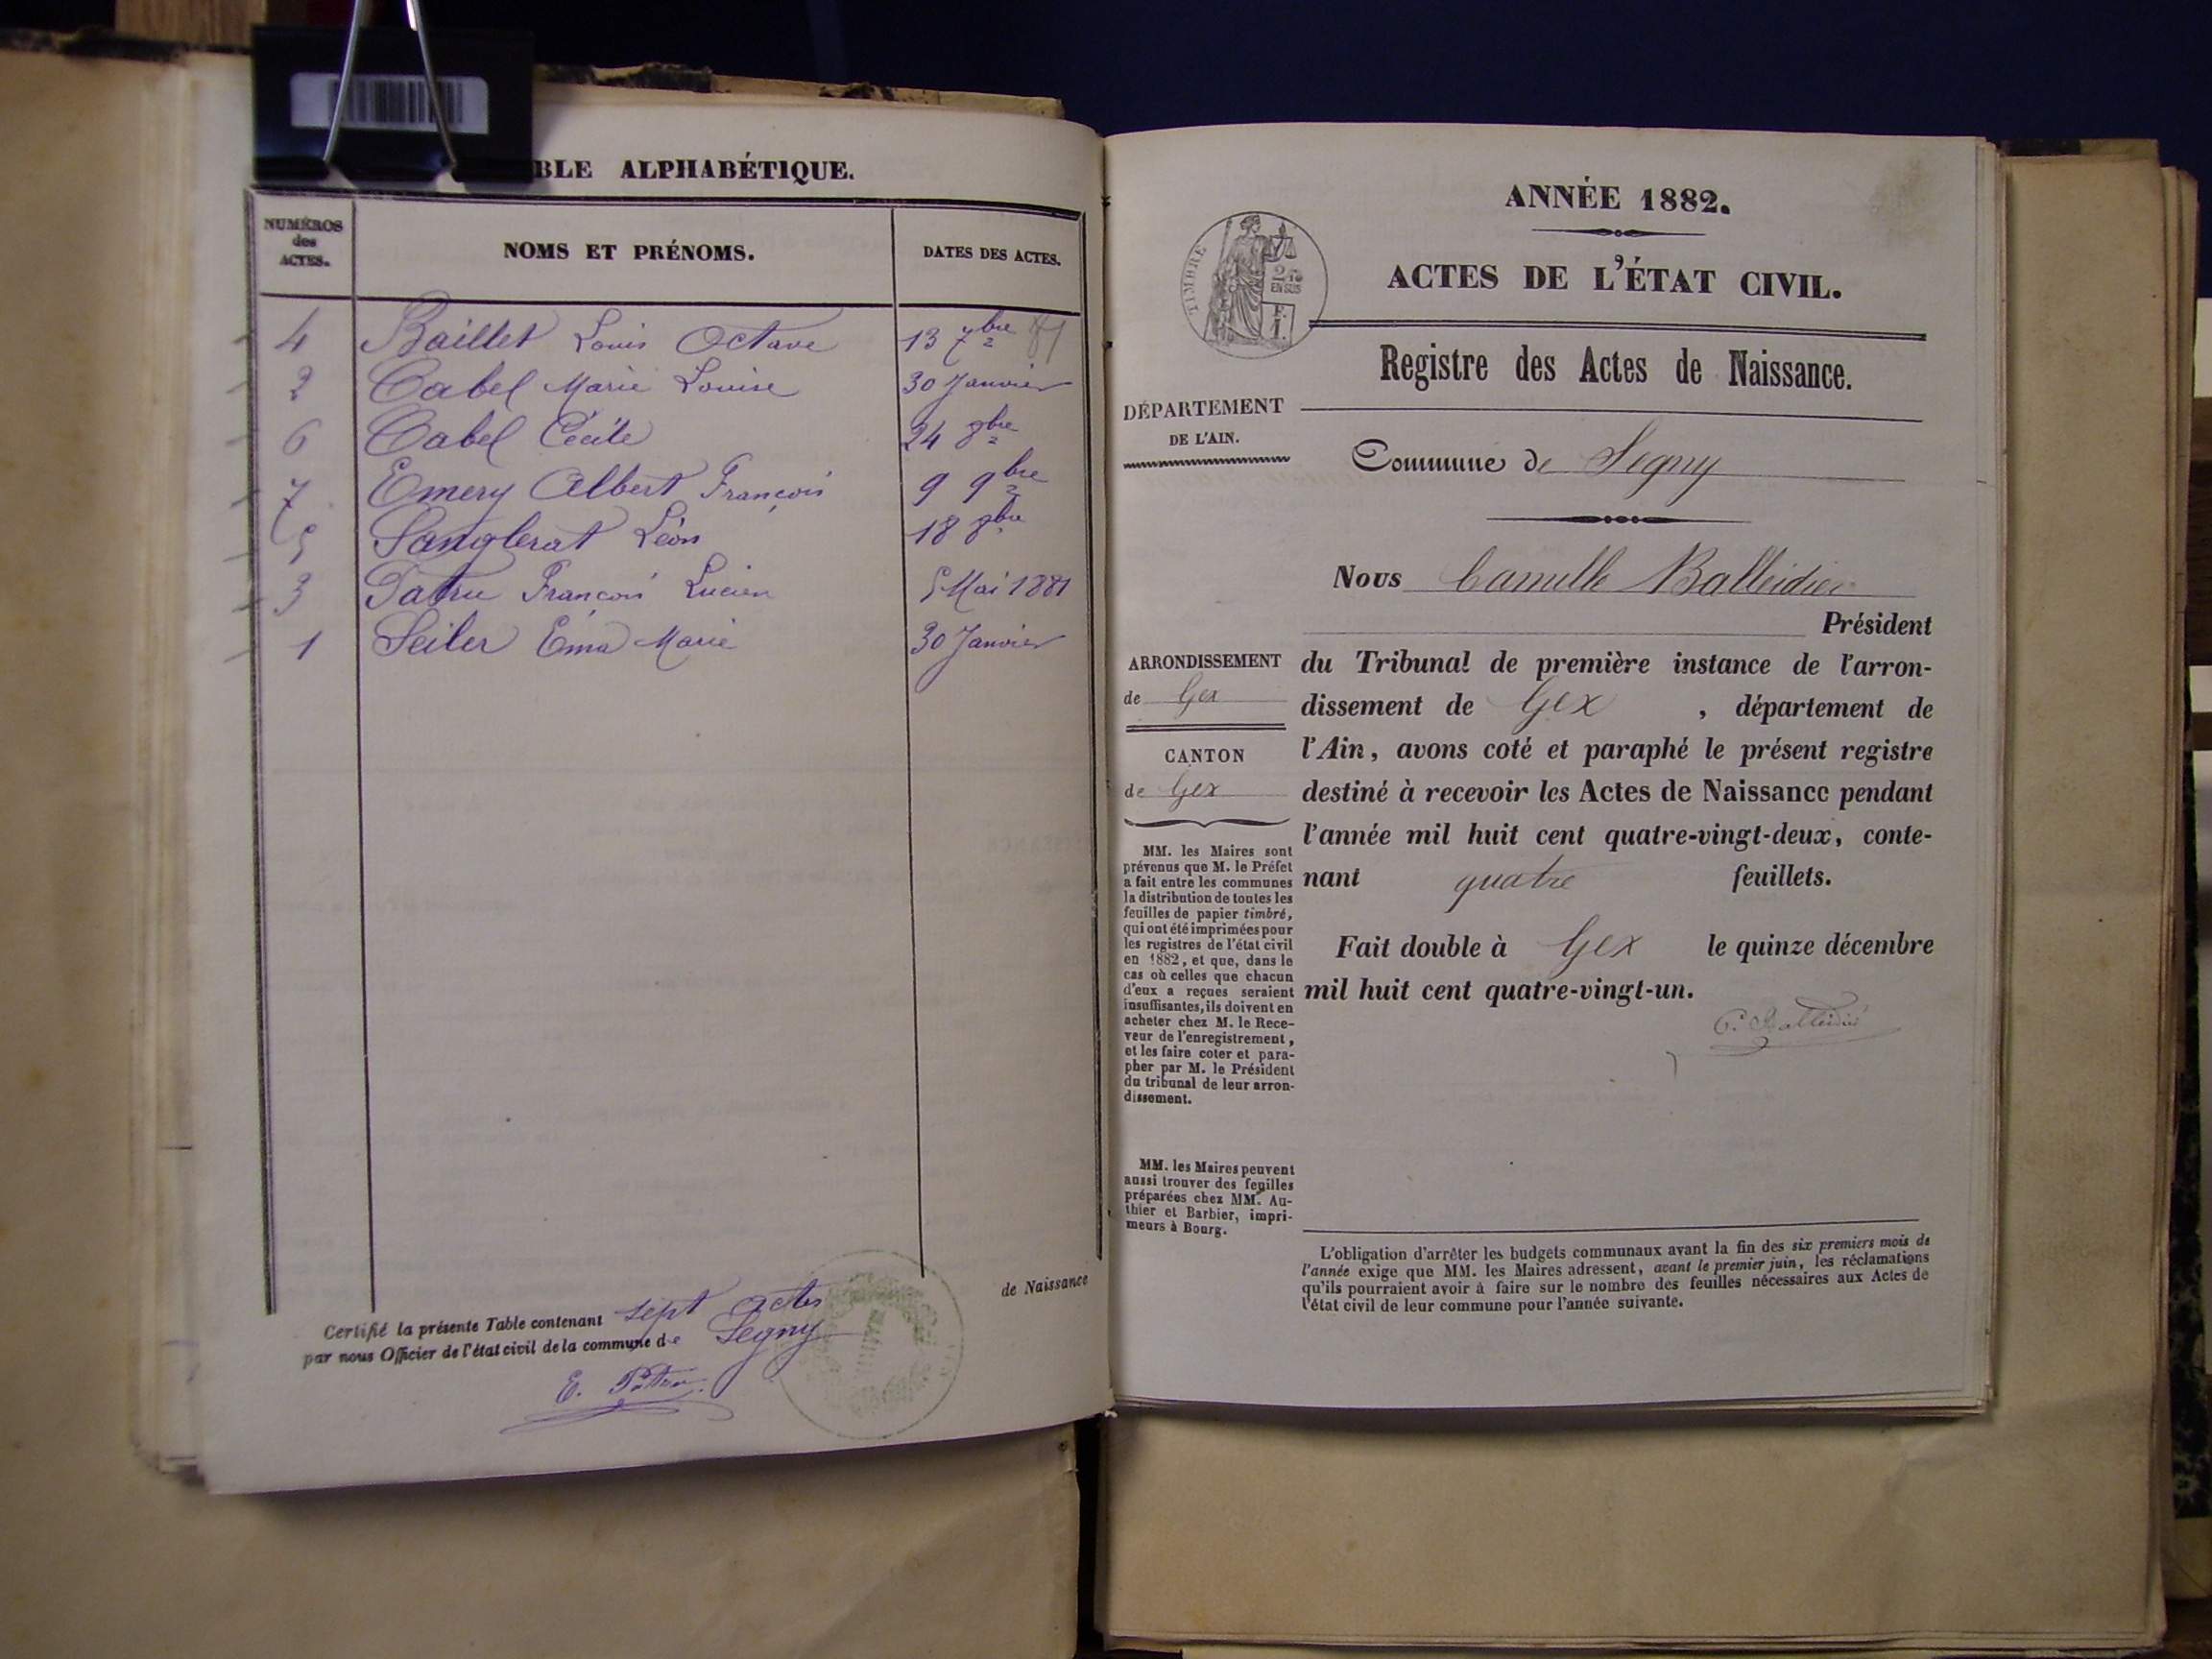 BLE ALPHABÉTIQUE.
NUMÉROS
des
ACTES.
NOMS ET PRÉNOMS.
DATES DES ACTES.
4 Baillet Louis Octave 13 7bre 81
2 Cabel Marie Louise 30 Janvier
6 Cabel Cécile 24 8bre
7 Emery Albert François 9 9bre
5 Sanglerat Léon 18 8bre
3 Patru François Lucien 5 Mai 1881
1 Seiler Ema Marie 30 Janvier
de Naissance
Certifié la présente Table contenant sept actes
par nous Officier de l'état civil de la commune de Segny
E. Patru
ANNÉE 1882.
TIMBRE
ACTES DE L'ÉTAT CIVIL.
Registre des Actes de Naissance.
DÉPARTEMENT
DE L'AIN.
Commune de Segny
Nous Camille Balleidier
Président
ARRONDISSEMENT
de Gex
CANTON
de Gex
du Tribunal de première instance de l'arron-
dissement de Gex, département de
l'Ain, avons coté et paraphé le présent registre
destiné à recevoir les Actes de Naissance pendant
l'année mil huit cent quatre-vingt-deux, conte-
nant quatre feuillets.
Fait double à Gex le quinze décembre
mil huit cent quatre-vingt-un.
C. Balleidier
MM. les Maires sont
prévenus que M. le Préfet
a fait entre les communes
la distribution de toutes les
feuilles de papier timbré,
qui ont été imprimées pour
les registres de l'état civil
en 1882, et que, dans le
cas où celles que chacun
d'eux a reçues seraient
insuffisantes, ils doivent en
acheter chez M. le Rece-
veur de l'enregistrement,
et les faire coter et para-
pher par M. le Président
du tribunal de leur arron-
dissement.
MM. les Maires peuvent
aussi trouver des feuilles
préparées chez MM. Au-
thier et Barbier, impri-
meurs à Bourg.
L'obligation d'arrêter les budgets communaux avant la fin des six premiers mois de
l'année exige que MM. les Maires adressent, avant le premier juin, les réclamations
qu'ils pourraient avoir à faire sur le nombre des feuilles nécessaires aux Actes de
l'état civil de leur commune pour l'année suivante.